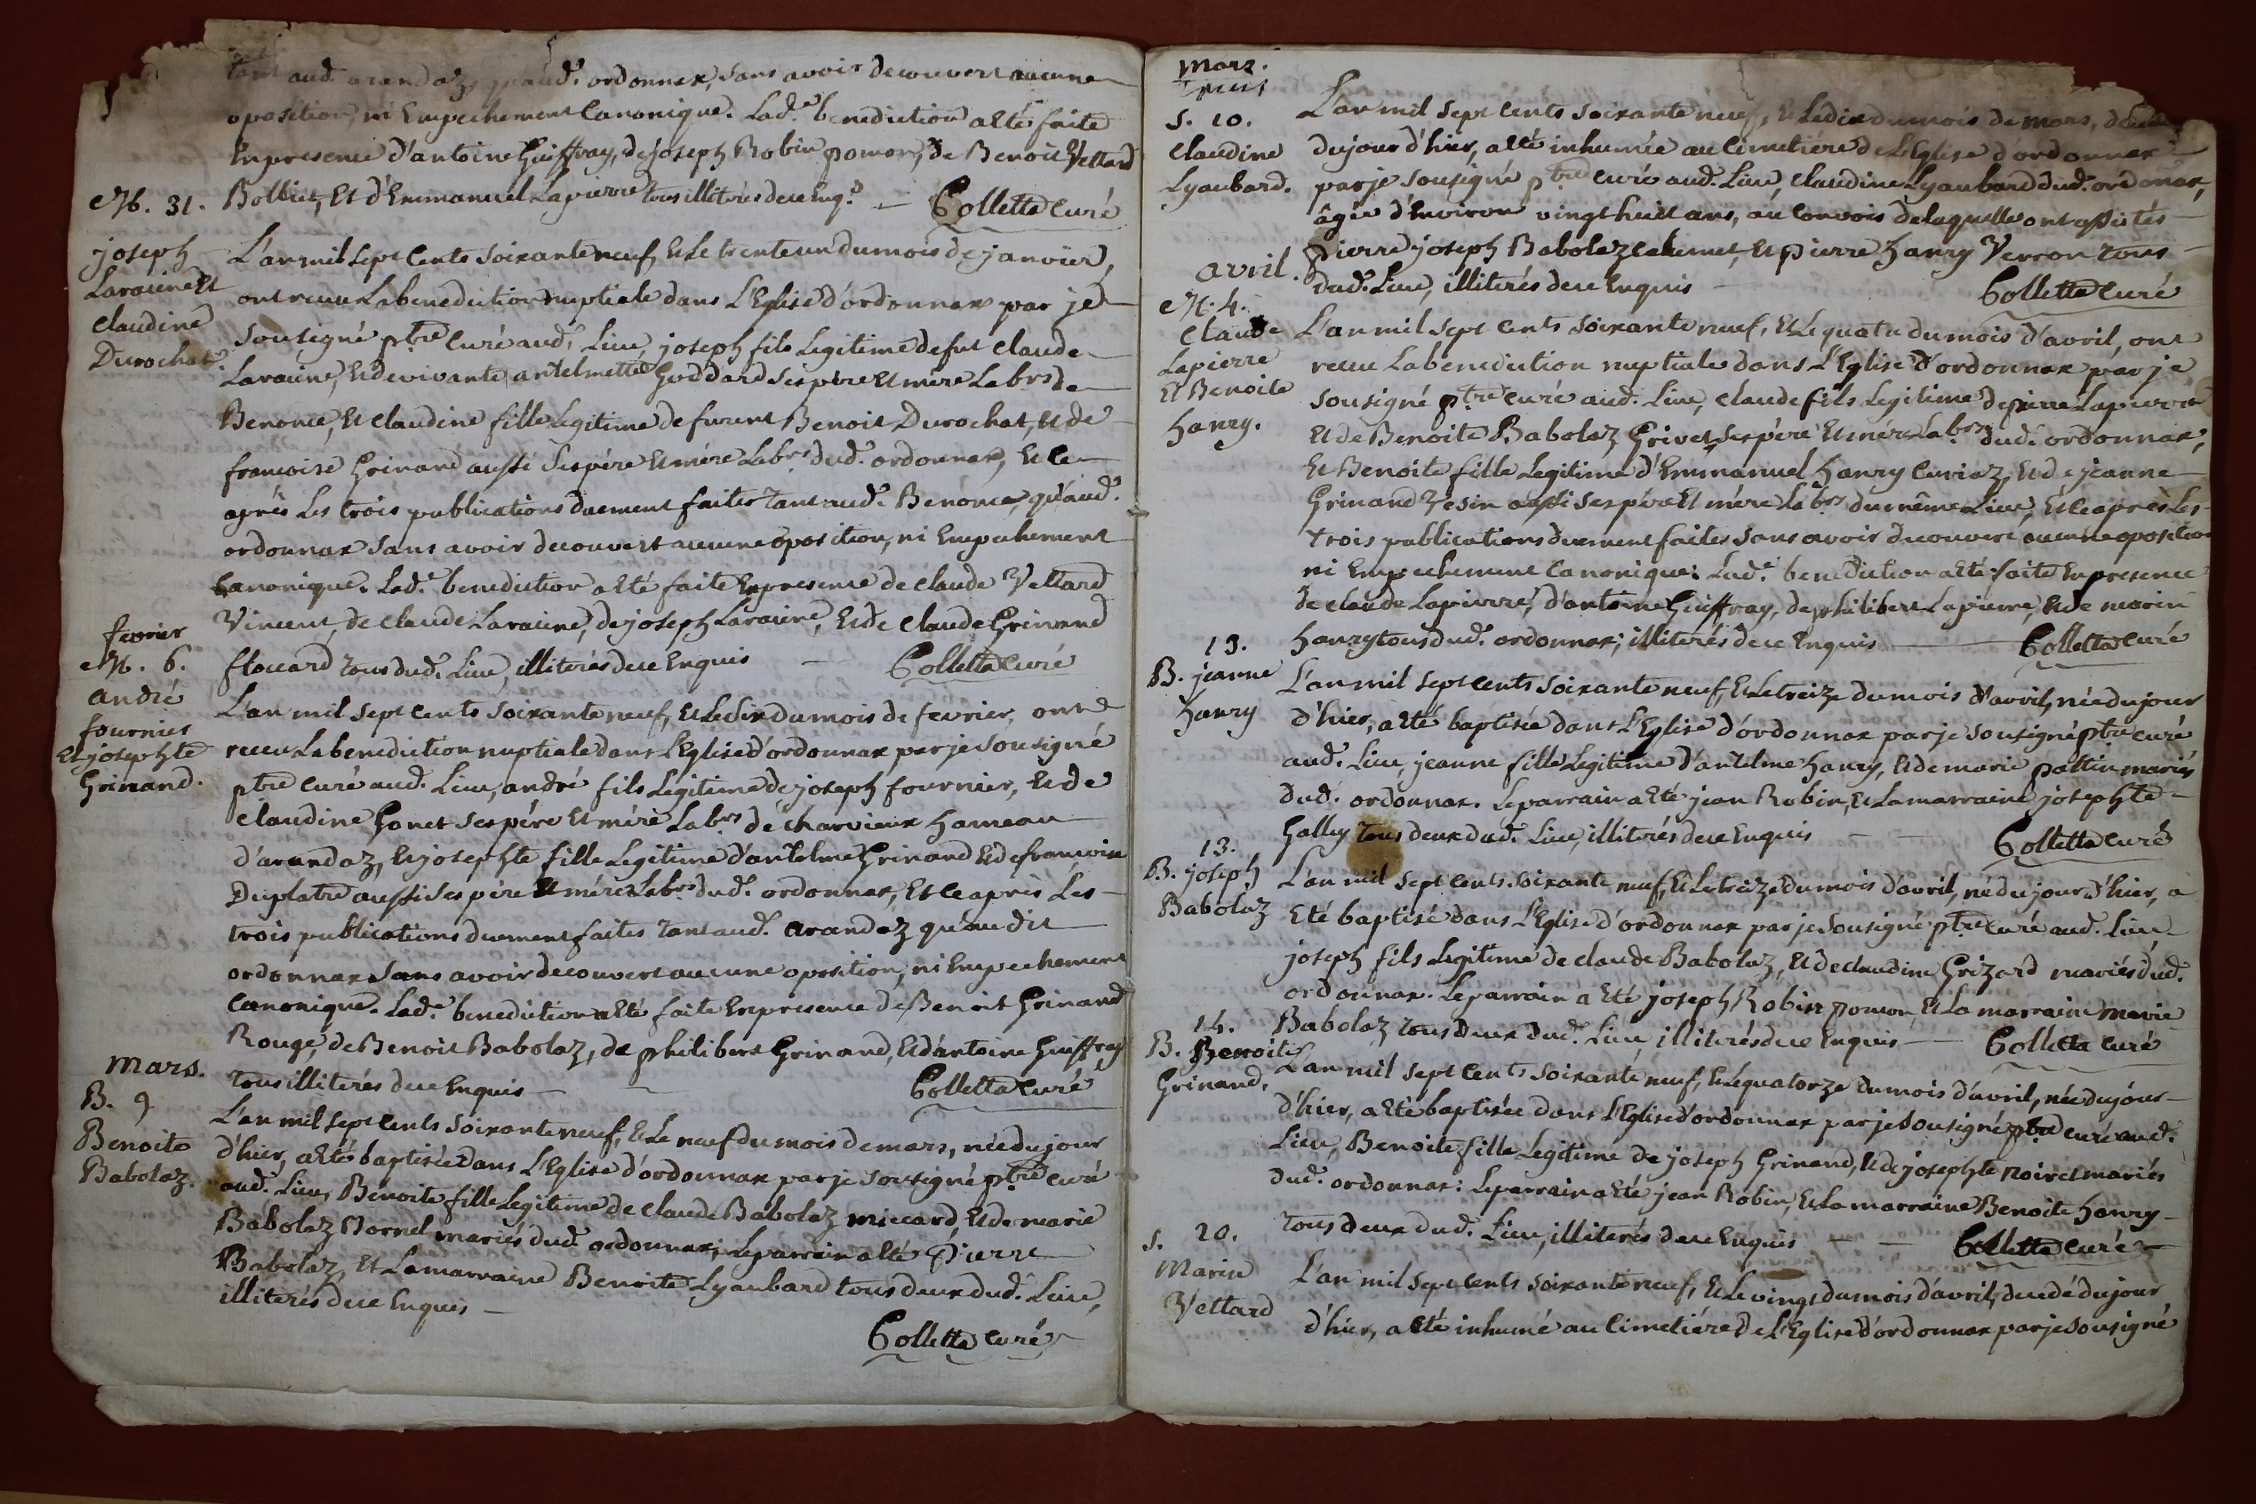 tant aud. arandaz, qu'aud. ordonnax, sans avoir decouvert aucune
oposition, ni Empechement Canonique. Lad.e benediction a eté faite
En presence d'antoine Guiffray, de joseph Robin pomon, de Benoit Vettard
M. 31.
Bolliet, Et d'Emmanuel Lapierre tous illiterés de ce Enq.s — Colletta Curé
joseph
Laraine Et
Claudine
Durochat.
L'an mil sept Cents soixante neuf, Et Le trente un du mois de janvier,
ont recu La benediction nuptiale dans L'Eglise d'ordonnax par je
sousigné ptre Curé aud. Lieu joseph fils Legitime de fut Claude
Laraine, Et de vivante antelmette Goddard ses pére Et mére Lab.rs de
Benonce, Et Claudine fille Legitime de furent Benoit Durochat, et de
francoise Grinand aussi ses pére Et mére Lab.rs dud. ordonnax, Et Ce
aprés Les trois publications duement faites tant aud. Benonce, qu'aud.
ordonnax sans avoir decouvert aucune oposition, ni Empechement
Canonique. Lad.e benediction a eté faite En presence de Claude Vettard
Vincent, de Claude Laraine, de joseph Laraine, Et de Claude Grinand
flocard tous dud. Lieu, illiterés de ce Enquis — Colletta Curé
fevrier
M. 6.
andré
fournier
Et josephte
Grinand.
L'an mil sept Cents soixante neuf, Et Le six du mois de fevrier, ont
recu La benediction nuptiale dans L'Eglise d'ordonnax par je sousigné
ptre Curé aud. Lieu, andré fils Legitime de joseph fournier, Et de
Claudine Gonet ses pére Et mére Lab.rs de Charvieux hameau
d'arandaz, Et josephte fille Legitime d'antelme Grinand Et de francoise
Duplatre aussi ses pére Et mére Lab.rs dud. ordonnax, Et Ce aprés Les
trois publications duement faites tant aud. arandaz qu'au dit
ordonnax sans avoir decouvert aucune oposition, ni Empechement
Canonique. Lad.e benediction a eté faite En presence de Benoit Grinand
Rouge, de Benoit Babolaz, de philibert Grinand, Et d'antoine Guiffray
tous illiterés de ce Enquis — Colletta Curé
Mars.
B. 9
Benoite
Babolaz.
L'an mil sept Cents soixante neuf, Et Le neuf du mois de mars, née du jour
d'hier, a eté baptisée dans L'Eglise d'ordonnax par je sousigné ptre Curé
aud. Lieu, Benoite fille Legitime de Claude Babolaz miccard, Et de marie
Babolaz Bornel mariés dud. ordonnax; Le parrain a eté Pierre
Babolaz, Et La marraine Benoite Lyaubard tous deux dud. Lieu,
illiterés de ce Enquis —
Colletta Curé
Mars.
S. 10.
Claudine
Lyaubard.
L'an mil sept Cents soixante neuf, Et Le dix du mois de mars,
du jour d'hier, a eté inhumée au Cimetiére de L'Eglise d'ordonnax
par je sousigné ptre Curé aud. Lieu, Claudine Lyaubard dud. ordonnax,
âgée d'Environ vingt huit ans, au Convois de laquelle ont assistés
pierre joseph Babolaz, Et pierre hanry Verron tous
dud. Lieu, illiterés de ce Enquis — Colletta Curé
avril.
M. 4.
Claude
Lapierre
Et Benoite
hanry.
L'an mil sept Cents soixante neuf, Et Le quatre du mois d'avril, ont
recu La benediction nuptiale dans L'Eglise d'ordonnax par je
sousigné ptre Curé aud. Lieu, Claude fils Legitime de pierre Lapierre
Et de Benoite Babolaz Grivet, ses pére Et mére Lab.rs dud. ordonnax,
Et Benoite fille Legitime d'Emmanuel hanry Curiaz, Et de jeanne
Grinand Tesin aussi ses pére Et mére Lab.rs du même Lieu, Et Ce aprés Les
trois publications duement faites sans avoir decouvert aucune oposition
ni Empechement Canonique: Lad.e benediction a eté faite En presence
de Claude Lapierre, d'antoine Guiffray, de philibert Lapierre, Et de marin
hanry tous dud. ordonnax; illiterés de ce Enquis — Colletta Curé
13.
B. jeanne
hanry
L'an mil sept Cents soixante neuf, Et Le treize du mois d'avril, née du jour
d'hier, a eté baptisée dans L'Eglise d'ordonnax par je sousigné ptre Curé
aud. Lieu, jeanne fille Legitime d'antelme hanry, Et de marie pattin mariés
dud. ordonnax. Le parrain a eté jean Robin, Et La marraine josephte
Galley tous deux dud. Lieu, illiterés de ce Enquis — Colletta Curé
13.
B. joseph
Babolaz
L'an mil sept Cents soixante neuf, Et Le treize du mois d'avril, né du jour d'hier, a
Eté baptisé dans L'Eglise d'ordonnax par je sousigné ptre Curé aud. Lieu
joseph fils Legitime de Claude Babolaz, Et de Claudine Grizard mariés dud.
ordonnax. Le parrain a eté joseph Robin pomon, Et La marraine marie
Babolaz tous deux dud. Lieu, illiterés de ce Enquis — Colletta Curé
14.
B. Benoite
Grinand.
L'an mil sept Cents soixante neuf, Et Le quatorze du mois d'avril, née du jour
d'hier, a eté baptisée dans L'Eglise d'ordonnax par je sousigné ptre Curé aud.
Lieu, Benoite fille Legitime de joseph Grinand, Et de josephte noiret mariés
dud. ordonnax: Le parrain a eté jean Robin, Et La marraine Benoite hanry
tous deux dud. Lieu, illiterés de ce Enquis — Colletta Curé
S. 20.
Marin
Vettard
L'an mil sept Cents soixante neuf, Et Le vingt du mois d'avril, decedé du jour
d'hier, a eté inhumé au Cimetiére de L'Eglise d'ordonnax par je sousigné